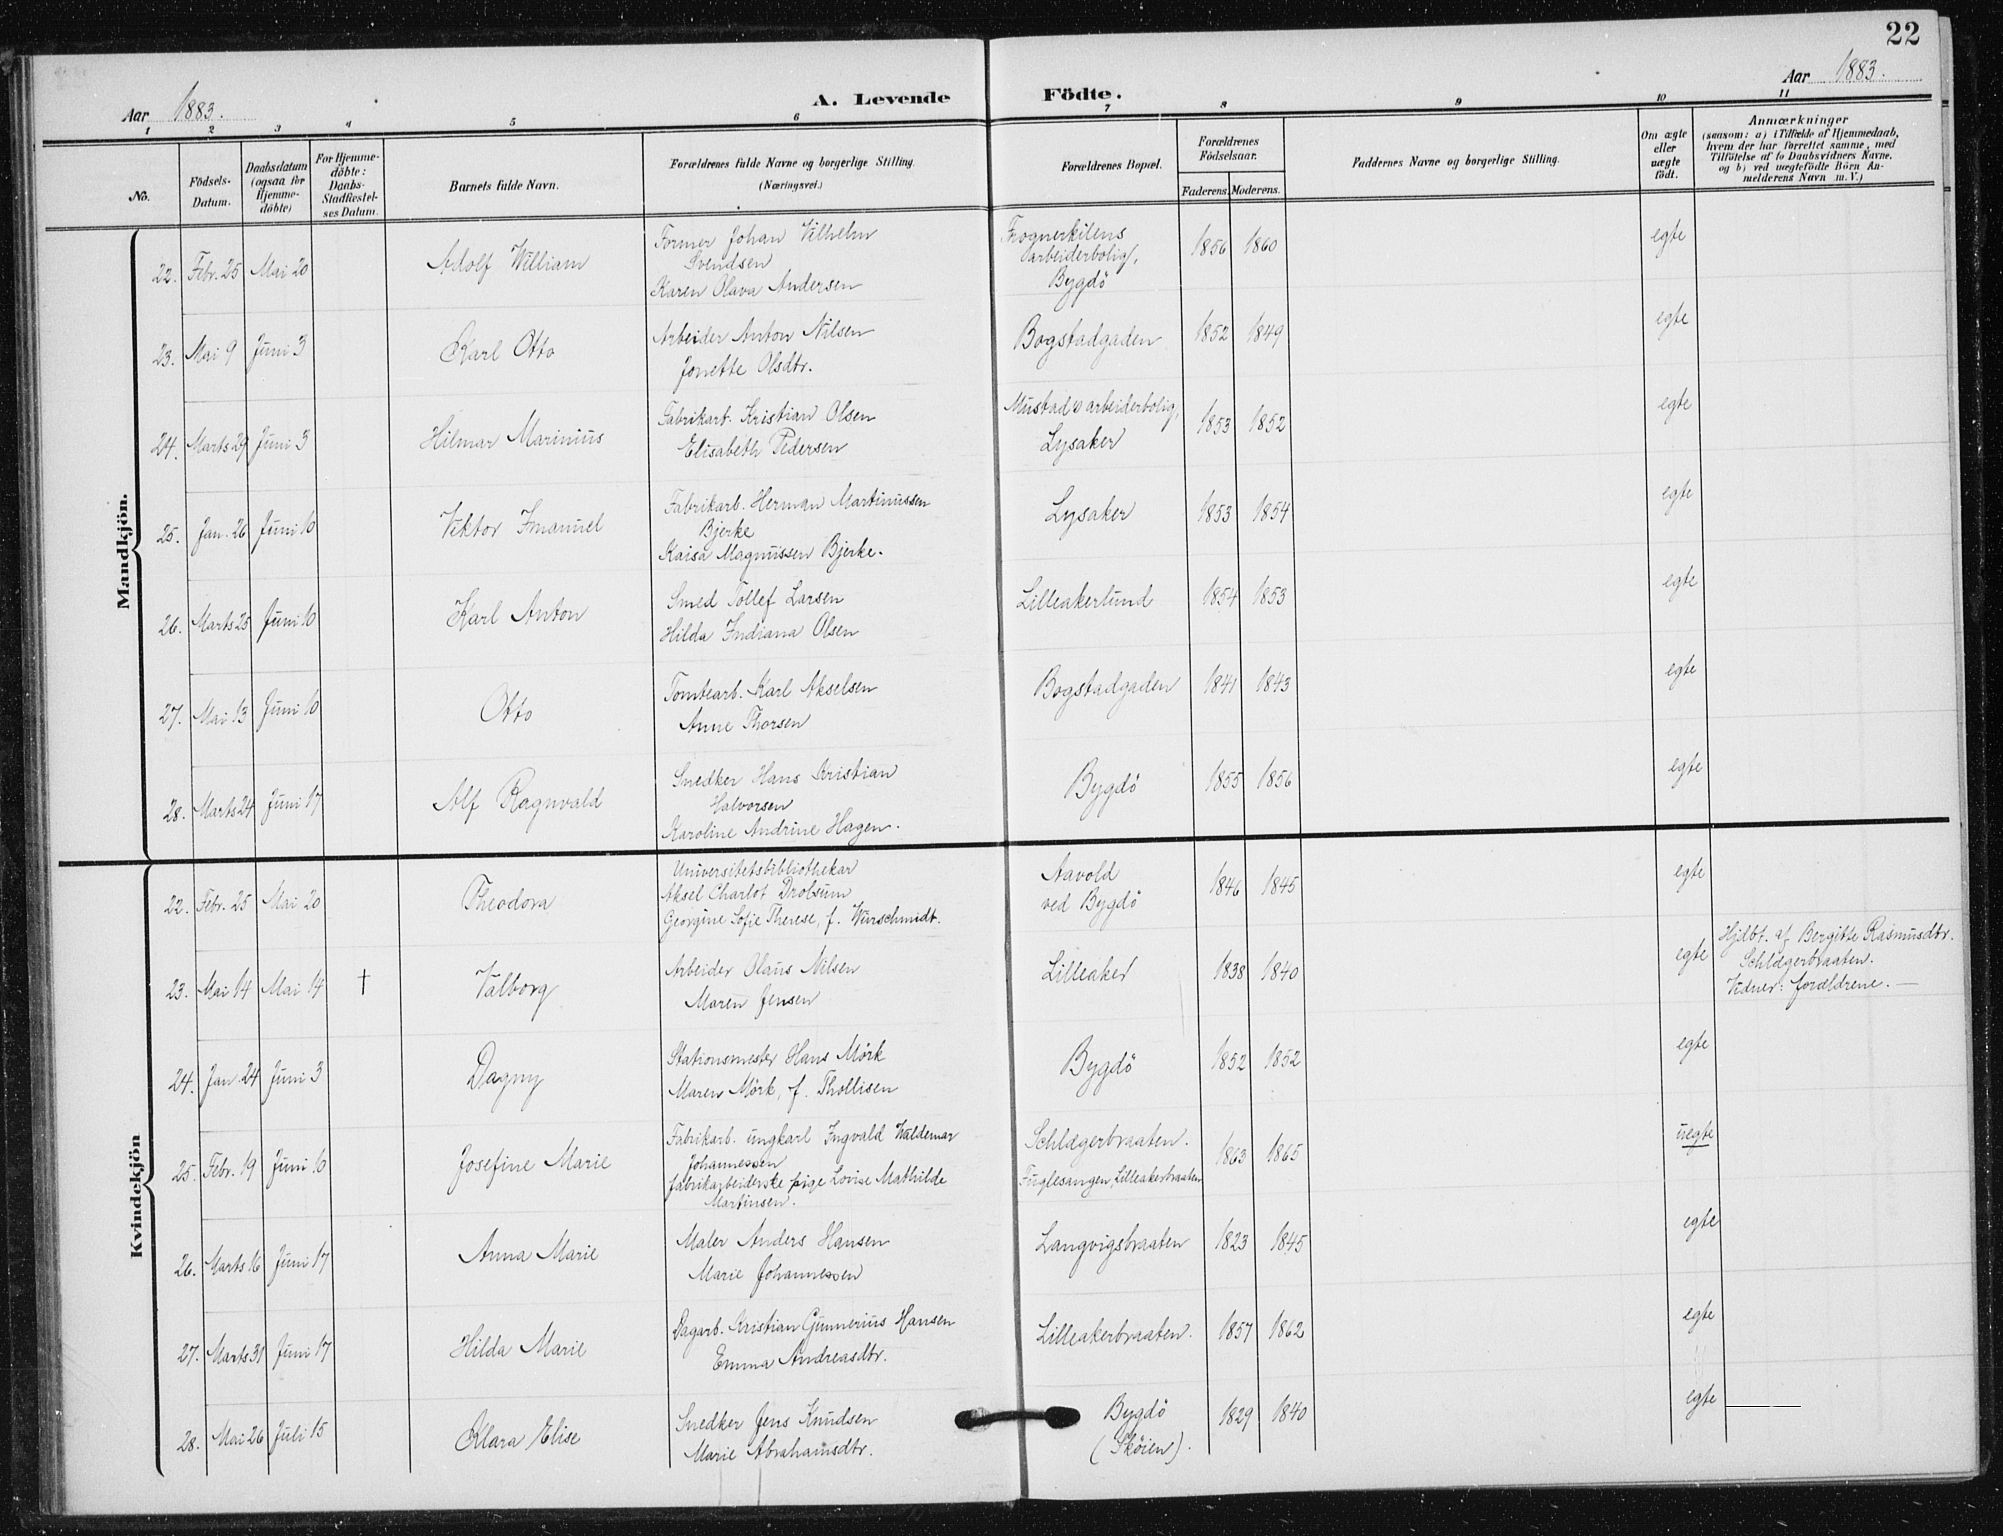 22
Aar 1883.
A. Levende Födte.
Aar 1883.
1 2 3 4 5 6 7 8 9 10 11
No.
Födsels-Datum.
Daabsdatum (ogsaa for Hjemme-döbte)
For Hjemme-döbte: Daabs-Stadfæstel-ses Datum.
Barnets fulde Navn.
Forældrenes fulde Navne og borgerlige Stilling. (Næringsvei.)
Forældrenes Bopæl.
Forældrenes Födselsaar.
Faderens. Moderens.
Faddernes Navne og borgerlige Stilling.
Om ægte eller uægte födt.
Anmærkninger
(saasom: a) i Tilfælde af Hjemmedaab,
hvem der har forrettet samme, med
Tilföielse af to Daabsvidners Navne,
og b) ved uægtefödte Börn An-
melderens Navn m. V.)
Mandkjön.
22. Febr. 25 Mai 20 Adolf William Former Johan Vilhelm
Svendsen
Karen Olava Andersen
Frognerkilens
arbeiderbolig,
Bygdö
1856 1860 egte
23. Mai 9 Juni 3 Karl Otto Arbeider Anton Nilsen
Jonette Olsdtr.
Bogstadgaden 1852 1849 egte
24. Marts 29 Juni 3 Hilmar Marinius Fabrikarb. Kristian Olsen
Elisabeth Pedersen
Mustads arbeiderbolig,
Lysaker
1853 1852 egte
25. Jan. 26 Juni 10 Viktor Imanuel Fabrikarb. Herman Martinussen
Bjerke
Kaisa Magnussen Bjerke.
Lysaker 1853 1854 egte
26. Marts 25 Juni 10 Karl Anton Smed Tollef Larsen
Hilda Indiana Olsen
Lilleakerlund 1854 1853 egte
27. Mai 13 Juni 10 Otto Tomtearb. Karl Akselsen
Anne Thorsen
Bogstadgaden 1841 1843 egte
28. Marts 24 Juni 17 Alf Ragnvald Snedker Hans Kristian
Halvorsen
Karoline Andrine Hagen.
Bygdö 1855 1856 egte
Kvindekjön
22. Febr. 25 Mai 20 Theodora Universitetsbibliothekar
Aksel Charlot Drolsum
Georgine Sofie Therese, f. Winschmidt.
Aavold
ved Bygdö
1846 1845 egte
23. Mai 14 Mai 14 † Valborg Arbeider Olaus Nilsen
Maren Jensen
Lilleaker 1838 1840 egte
Hjdbt. af Bergitte Rasmusdtr.
Schlægerbraaten.
Vidner: forældrene. —
24. Jan. 24 Juni 3 Dagny Stationsmester Hans Mörk
Maren Mörk, f. Thollisen
Bygdö 1852 1852 egte
25. Febr. 19 Juni 10 Josefine Marie Fabrikarb. ungkarl Ingvald Waldemar
Johannessen
fabrikarbeiderske pige Lovise Mathilde
Martinsen.
Schlægerbraaten.
Fuglesangen, Lilleakerbraaten
1863 1865 uegte
26. Marts 16 Juni 17 Anna Marie Maler Anders Hansen
Marie Johannessen
Langvigsbraaten 1823 1845 egte
27. Marts 31 Juni 17 Hilda Marie Dagarb. Kristian Gunnerius Hansen
Emma Andreasdtr.
Lilleakerbraaten. 1857 1862 egte
28. Mai 26 Juli 15 Klara Elise Snedker Jens Knudsen
Marie Abrahamsdtr.
Bygdö
(Sköien).
1829 1840 egte